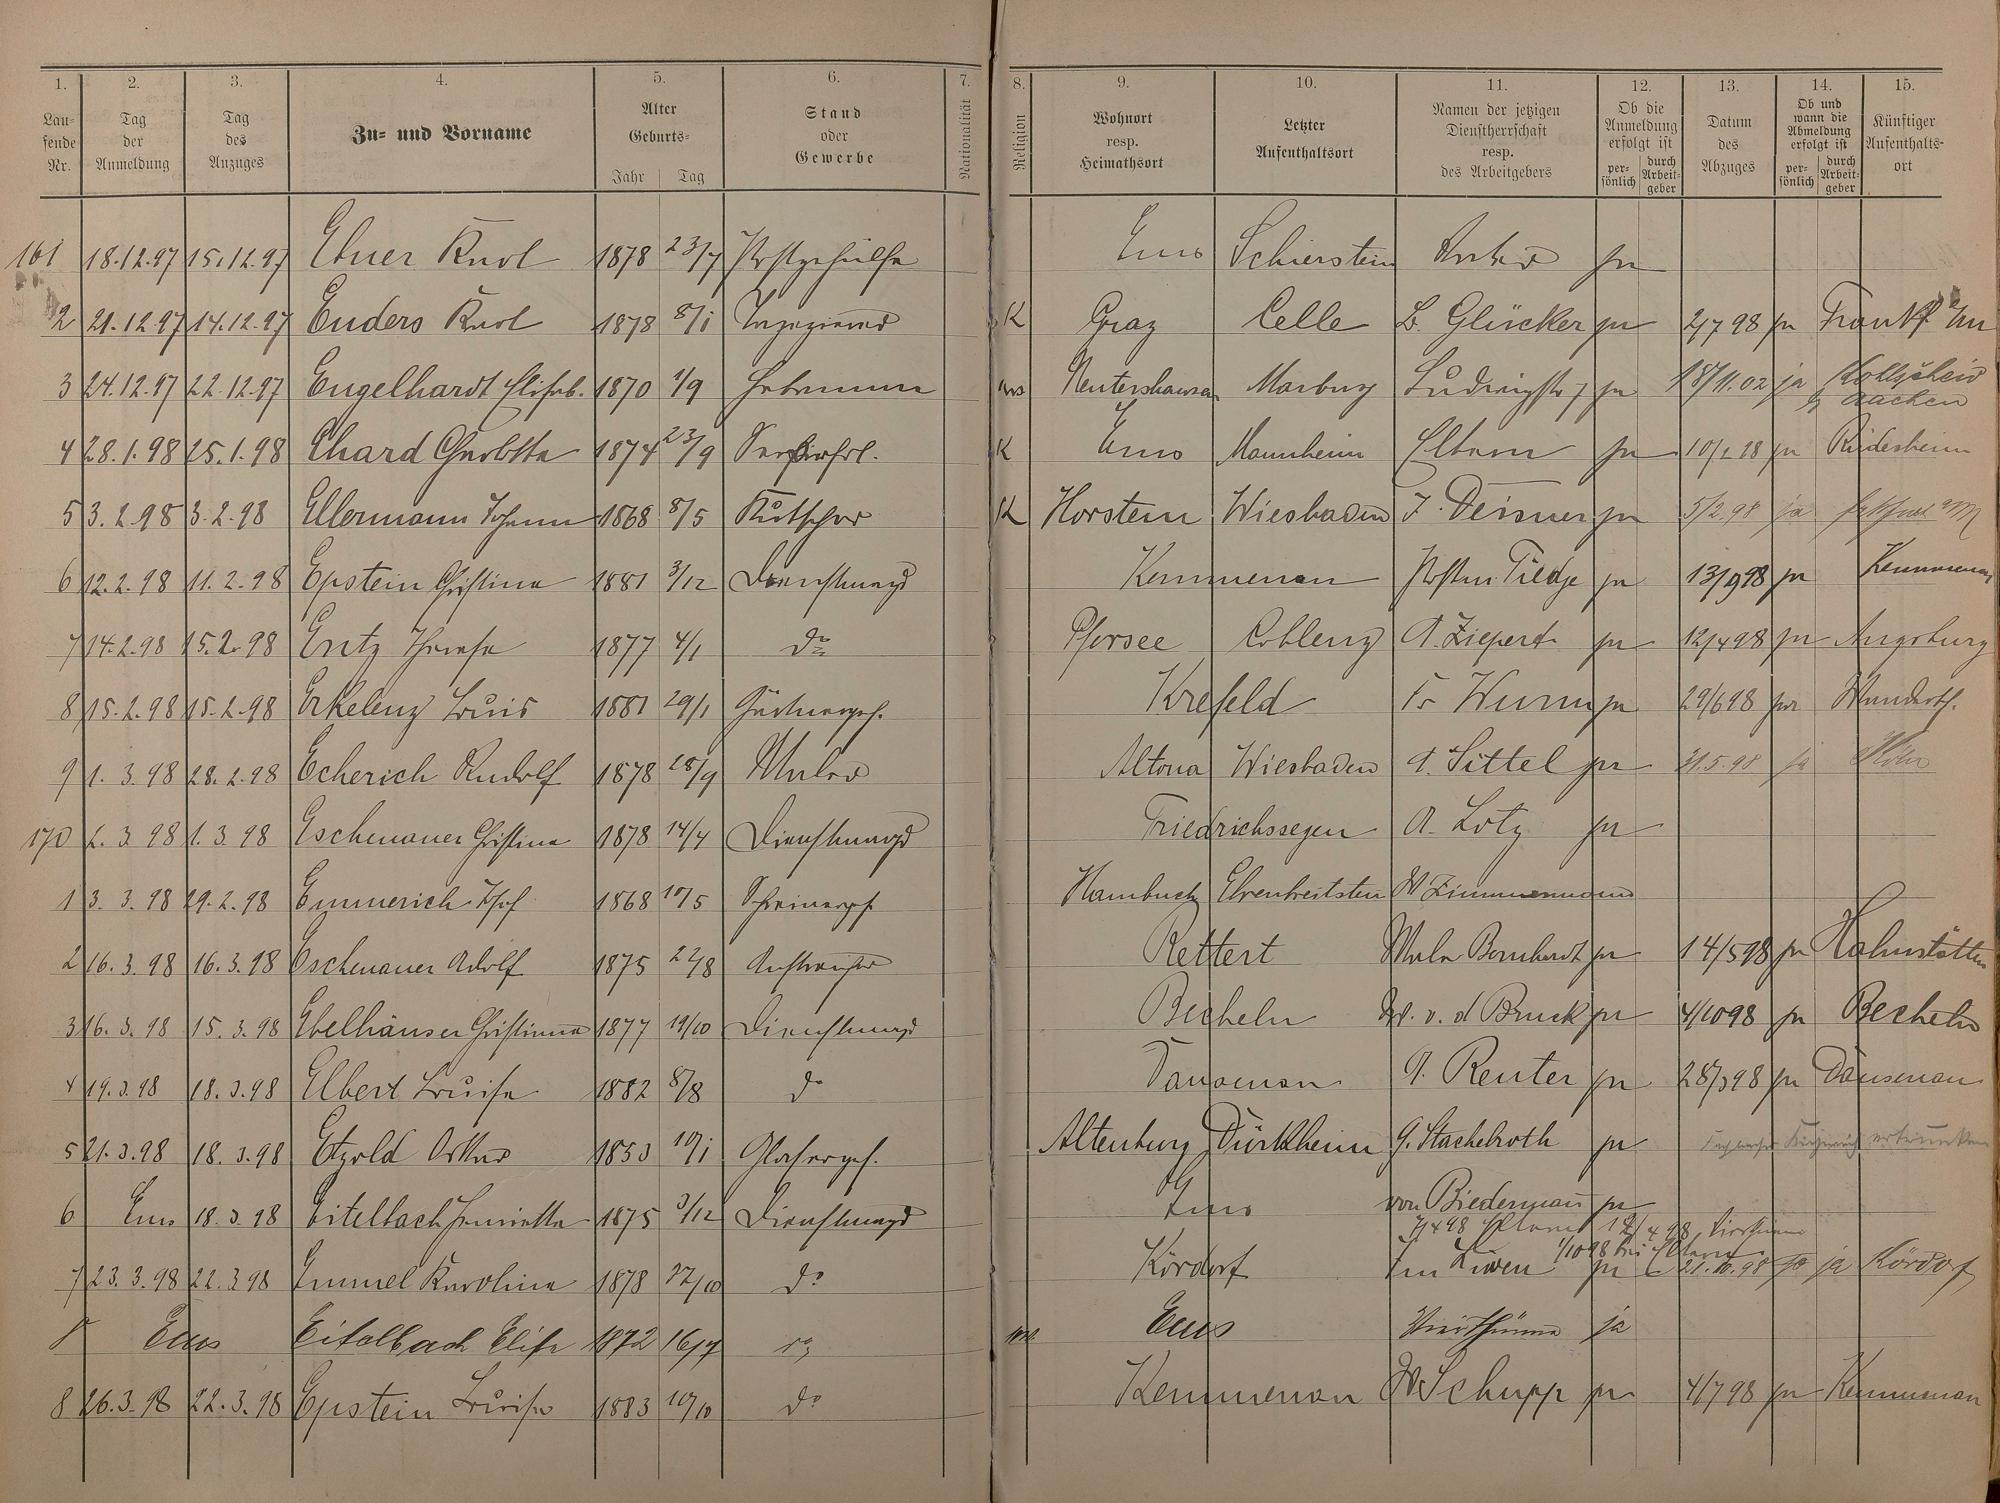 1. 2. 3. 4. 5. 6. 7. 8. 9. 10. 11. 12. 13. 14. 15.
Lau-
fende
Nr.
Tag
der
Anmeldung
Tag
des
Anzuges
Zu- und Vorname
Alter
Geburts-
Jahr Tag
Stand
oder
Gewerbe
Nationalität
Religion
Wohnort
resp.
Heimathsort
Letzter
Aufenthaltsort
Namen der jetzigen
Dienstherrschaft
resp.
des Arbeitgebers
Ob die
Anmeldung
erfolgt ist
per-
sönlich
durch
Arbeit-
geber
Datum
des
Abzuges
Ob und
wann die
Abmeldung
erfolgt ist
per-
sönlich
durch
Arbeit-
geber
Künftiger
Aufenthalts-
ort
161 18.12.97 15.12.97 Ebner Karl 1878 23/7 Postgehülfe Ems Schierstein ja
2 21.12.97 14.12.97 Enders Karl 1878 8/1 K Graz Celle L. Glücker ja 2/7 98 ja Frankf a/m
3 24.12.97 22.12.97 Engelhardt Elisab. 1870 1/9 Hebamme Marburg Ludwigstr 7 ja 18/11.02 ja Aachen
4 28.1.98 25.1.98 Ehard 1874 23/9 K Ems Mannheim Eltern ja ja Rüdesheim
5 3.2.98 3.2.98 Ellermann Johann 1868 8/5 Kutscher K Horstein Wiesbaden J. Deisner ja 5/2.98 ja
6 12.2.98 11.2.98 Epstein Christina 1881 3/12 Dienstmagd Kemmenau Tiedge ja 13/9 98 ja Kemmenau
7 14.2.98 15.2.98 Entz Therese 1877 4/1 do Pfersee Coblenz A. Ziepert ja 12/4 98 ja Augsburg
8 15.2.98 15.2.98 Erkelenz Louis 1881 29/1 Gärtnergeh. Krefeld Fr Wurm ja 29/6 98 ja
9 1.3.98 28.2.98 Echerich Rudolf 1878 28/9 Maler Altona Wiesbaden A. Sittel ja 21.5.98 ja
170 2.3.98 1.3.98 Eschenauer Christina 1878 14/4 Dienstmagd Friedrichssegen A. Lotz ja
1 3.3.98 29.2.98 Emmerich Josef 1868 10/5 Schreinergeh Hambuch Ehrenbreitstein W Zimmermann
2 16.3.98 16.3.98 Eschenauer Adolf 1875 22/8 Anstreicher Rettert Maler Bernhardt ja 14/5 98 ja Hahnstätten
3 16.3.98 15.3.98 Ebelhäuser Christiane 1877 19/10 Dienstmagd Becheln v. d Bruck ja 4/10 98 ja Becheln
4 19.3.98 18.3.98 Elbert Louise 1882 8/8 do Dausenau A. Reuter ja 28/3 98 ja Dausenau
5 21.3.98 18.3.98 Etzold Oskar 1853 10/1 Glasergeh. Altenburg Dürkheim G. Stachelroth ja ertrunken
6 Ems 18.3.98 Eitelbach Henriette 1875 3/12 Dienstmagd Ems von Biederman ja
7/4 98 Eltern 12/4 98
1/10 98 bei Eltern
7 23.3.98 22.3.98 Immel Karolina 1878 27/10 do Kördorf Im Löwen ja 21.10.98 ja Kördorf
8 Ems Eitelbach Elise 1872 16/7 do Ems Vierthürme ja
8 26.3.98 22.3.98 Epstein Louise 1883 10/10 do Kemmenau W Schupp ja 4/7 98 ja Kemmenau